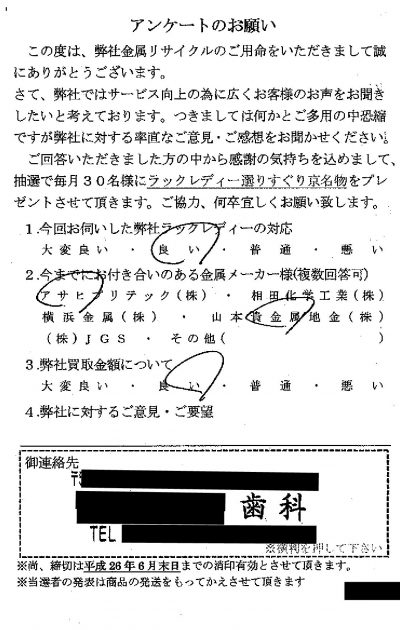 アンケートのお願い
この度は、弊社金属リサイクルのご用命をいただきまして誠
にありがとうございます。
さて、弊社ではサービス向上の為に広くお客様のお声をお聞き
したいと考えております。つきましては何かとご多用の中恐縮
ですが弊社に対する率直なご意見・ご感想をお聞かせください。
ご回答いただきました方の中から感謝の気持ちを込めまして、
抽選で毎月30名様にラックレディー選りすぐり京名物をプレ
ゼントさせて頂きます。ご協力、何卒宜しくお願い致します。
1.今回お伺いした弊社ラックレディーの対応
大変良い・良い・普通・悪い
2.今までにお付き合いのある金属メーカー様(複数回答可)
アサヒプリテック(株)・相田化学工業(株)
横浜金属(株)・山本貴金属地金(株)
(株)JGS・その他( )
3.弊社買取金額について
大変良い・良い・普通・悪い
4.弊社に対するご意見・ご要望
御連絡先
歯科
TEL
※横判を押して下さい
※尚、締切は平成26年6月末日までの消印有効とさせて頂きます。
※当選者の発表は商品の発送をもってかえさせて頂きます